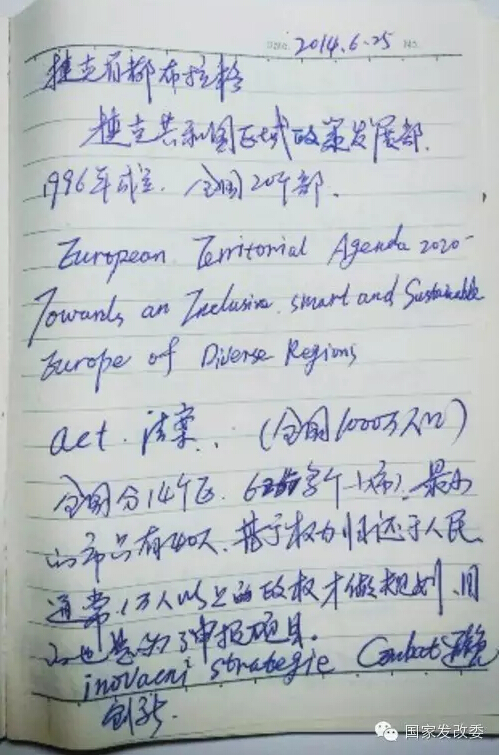 Date. 2014.6.25 No.
捷克首都布拉格
捷克共和国区域政策发展部.
1996年成立. 全国20个部.
European Territorial Agenda 2020-
Towards an Inclusive. smart and Sustainable
Europe of Diverse Regions
act. 法案. (全国1000万人口)
全国分14个区. 6 多个市). 最小
的市只有40人. 基于权力归还于人民.
通常1万人以上的政权才做规划. 目
也是为了申报项目.
inovacni strategie
创新.
国家发改委